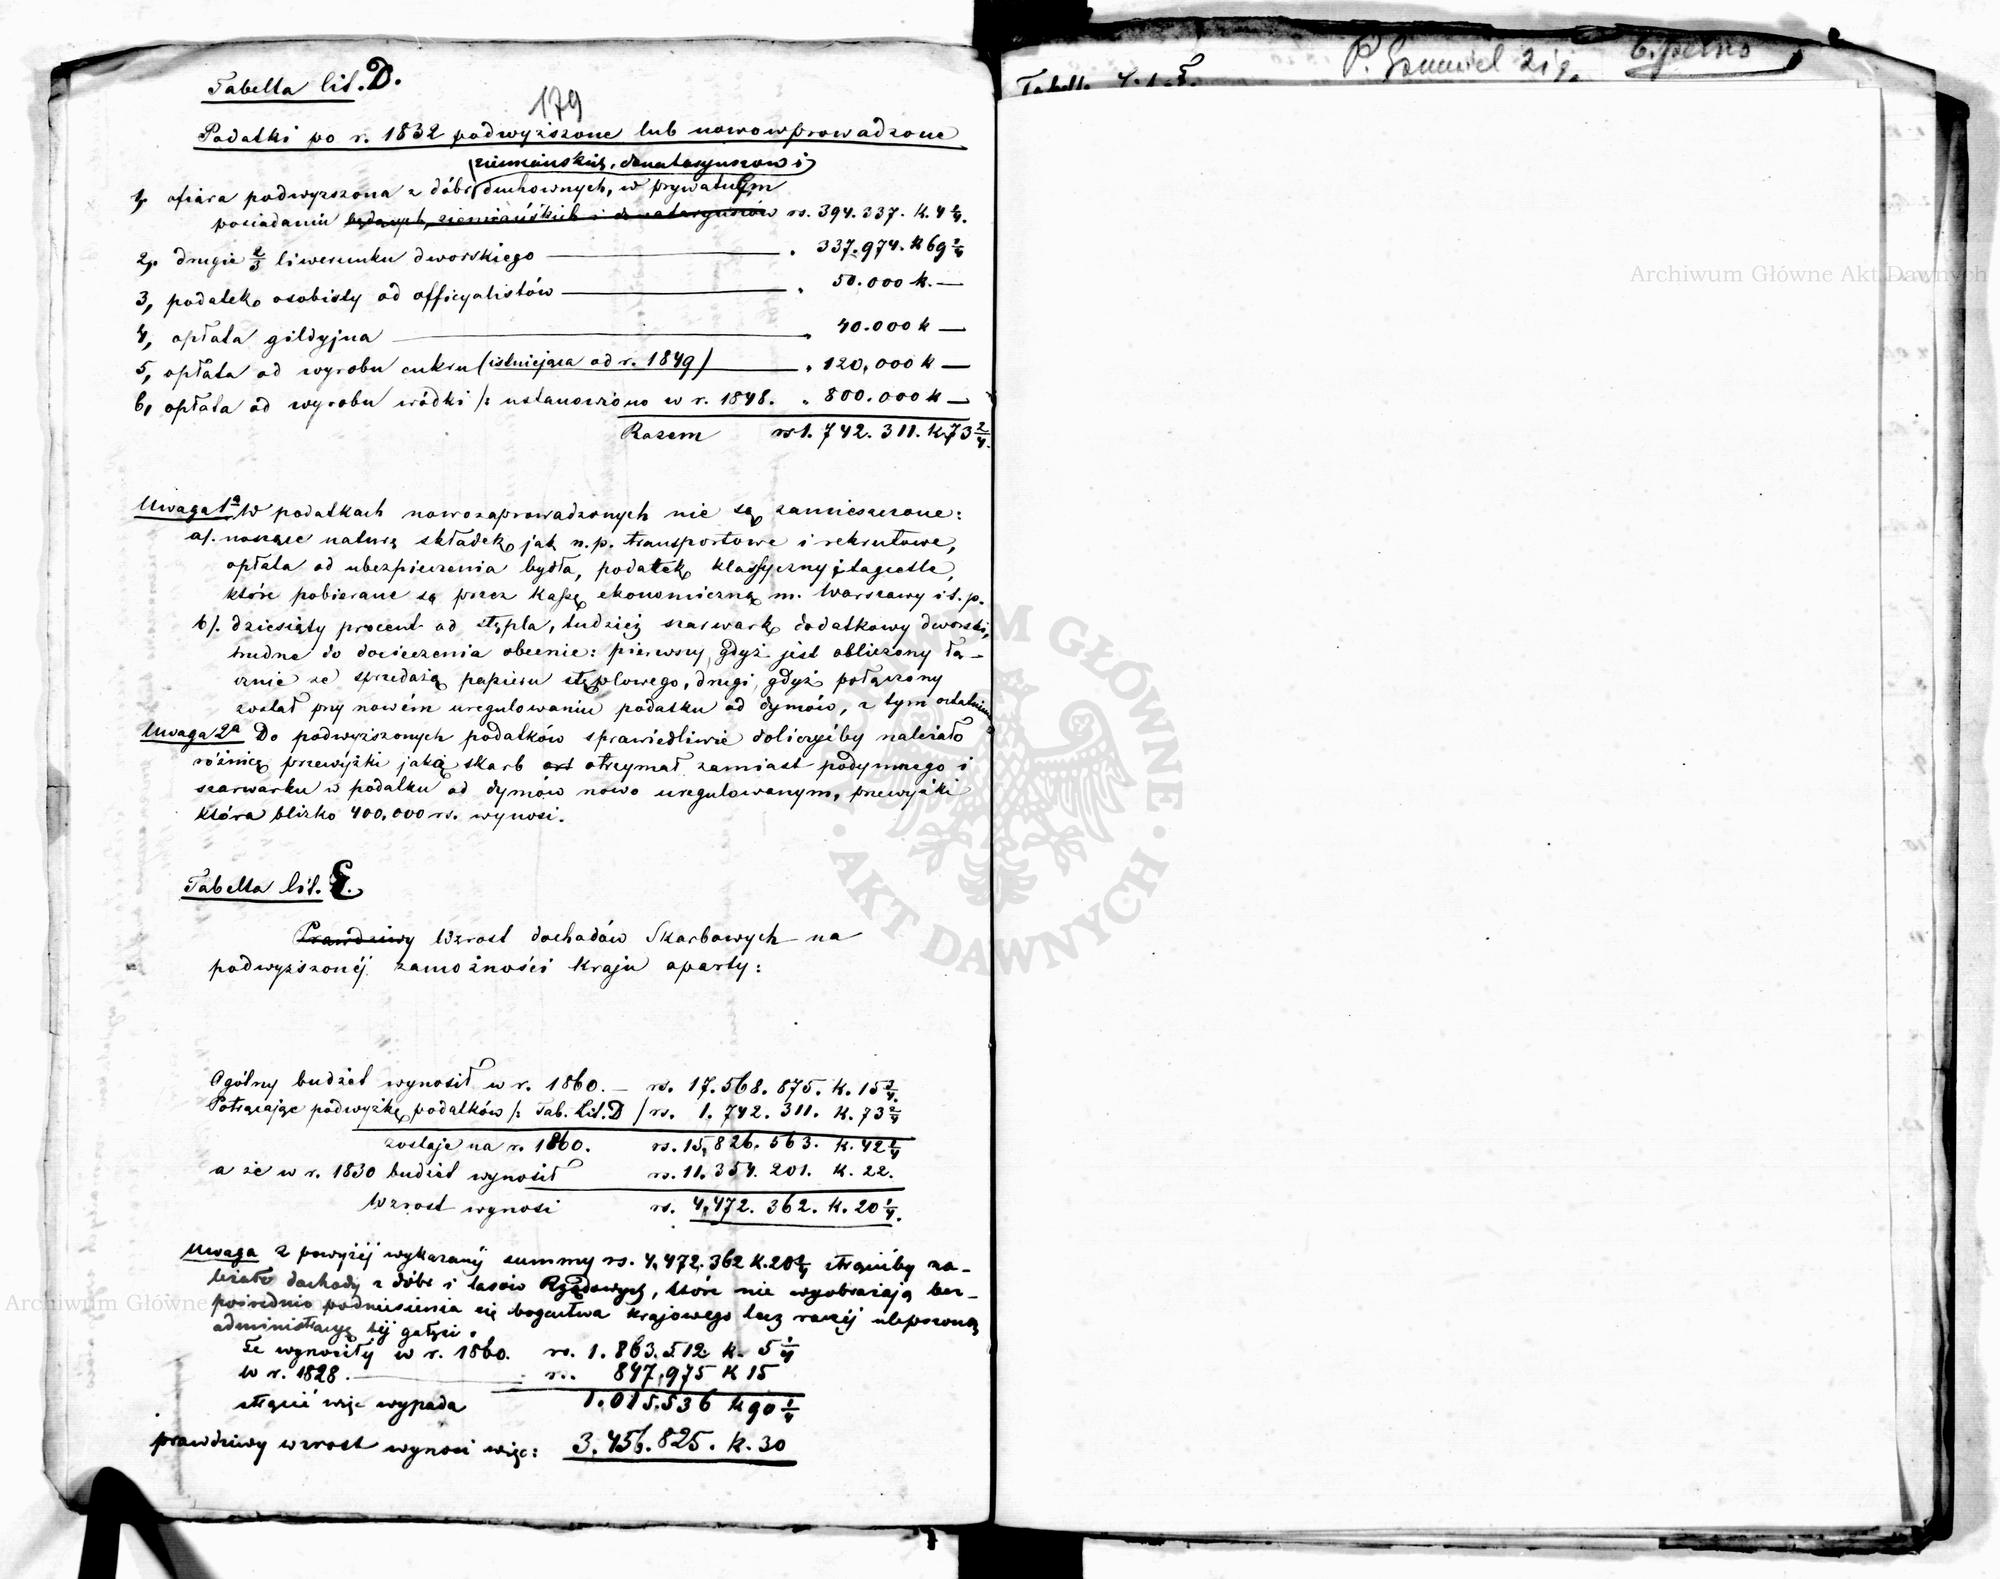 Tabella lit. D.
179
Podatki po r. 1832 podwyższone lub nowowprowadzone
(ziemiańskich, donataryuszów i)
1, ofiara podwyższona z dóbr duchownych, w prywatnem
posiadaniu będących, ziemiańskich i donataryuszów rs. 394.337. k. 4 2/4.
2, drugie 2/3 liwerunku dworskiego — „ 337.974. k 69 2/4
3, podatek osobisty od officyalistów — „ 50.000 k. —
4, opłata gildyjna — „ 40.000 k —
5, opłata od wyrobu cukru (istniejąca od r. 1849) — „ 120,000 k —
6, opłata od wyrobu wódki /: ustanowiono w r. 1848. „ 800.000 k —
Razem rs 1. 742. 311. k. 73 2/4.
Uwaga 1a W podatkach nowozaprowadzonych nie są zamieszczone:
a/. noszące naturę składek, jak n.p. transportowe i rekrutowe,
opłata od ubezpieczenia bydła, podatek klassyczny, tagzetle,
które pobierane są przez kassę ekonomiczną m. Warszawy i t. p.
b/. dziesiąty procent od stępla, tudzież szarwark dodatkowy dworski,
trudne do dociczenia obecnie: pierwszy, gdyż jest obliczony łą-
cznie ze sprzedażą papieru stęplowego, drugi, gdyż połączony
został przy nowém uregulowaniu podatku od dymów, z tym ostatnim
Uwaga 2a Do podwyższonych podatków sprawiedliwie doliczyćby należało
różnicę przewyżki jaką skarb otrzymał zamiast podymnego i
szarwarku w podatku od dymów nowo uregulowanym, przewyżki
która blizko 400,000 rs. wynosi.
Tabella lit. E.
Prawdziwy Wzrost dochodów Skarbowych na
podwyższonéj zamożności kraju oparty:
Ogólny budżet wynosił w r. 1860. — rs. 17. 568. 875. k. 15 2/4.
Potrącając podwyżkę podatków /: Tab. Lit. D / rs. 1. 742. 311. k. 73 2/4
zostaje na r. 1860. rs. 15,826. 563. k. 42 1/4
a że w r. 1830 budżet wynosił rs. 11. 354. 201. k. 22.
Wzrost wynosi rs. 4,472. 362. k. 20 1/4.
Uwaga z powyżéj wykazanéj summy rs. 4,472. 362 k. 20 1/4 strącićby na-
leżało dochody z dóbr i lasów Rządowych, które nie wyobrażają bez-
pośrednio podniesienia się bogactwa krajowego lecz raczéj ulepszoną
administracyę téj gałęzi.
Te wynosiły w r. 1860. rs. 1. 863. 512 k. 5 1/4
w r. 1828. — rs. 847,975 k 15
strącić więc wypada 1.015.536 k 90 1/4
prawdziwy wzrost wynosi więc: 3. 456. 825. k. 30
P. Samuel 21 g.
Archiwum Główne Akt Dawnych
Archiwum Główne Akt Dawnych
ARCHIWUM GŁÓWNE · AKT DAWNYCH ·